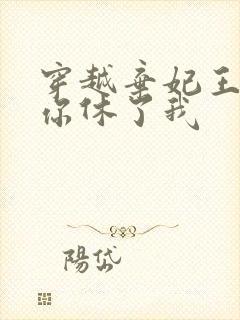 穿越弃妃王
你休了我
陽岱